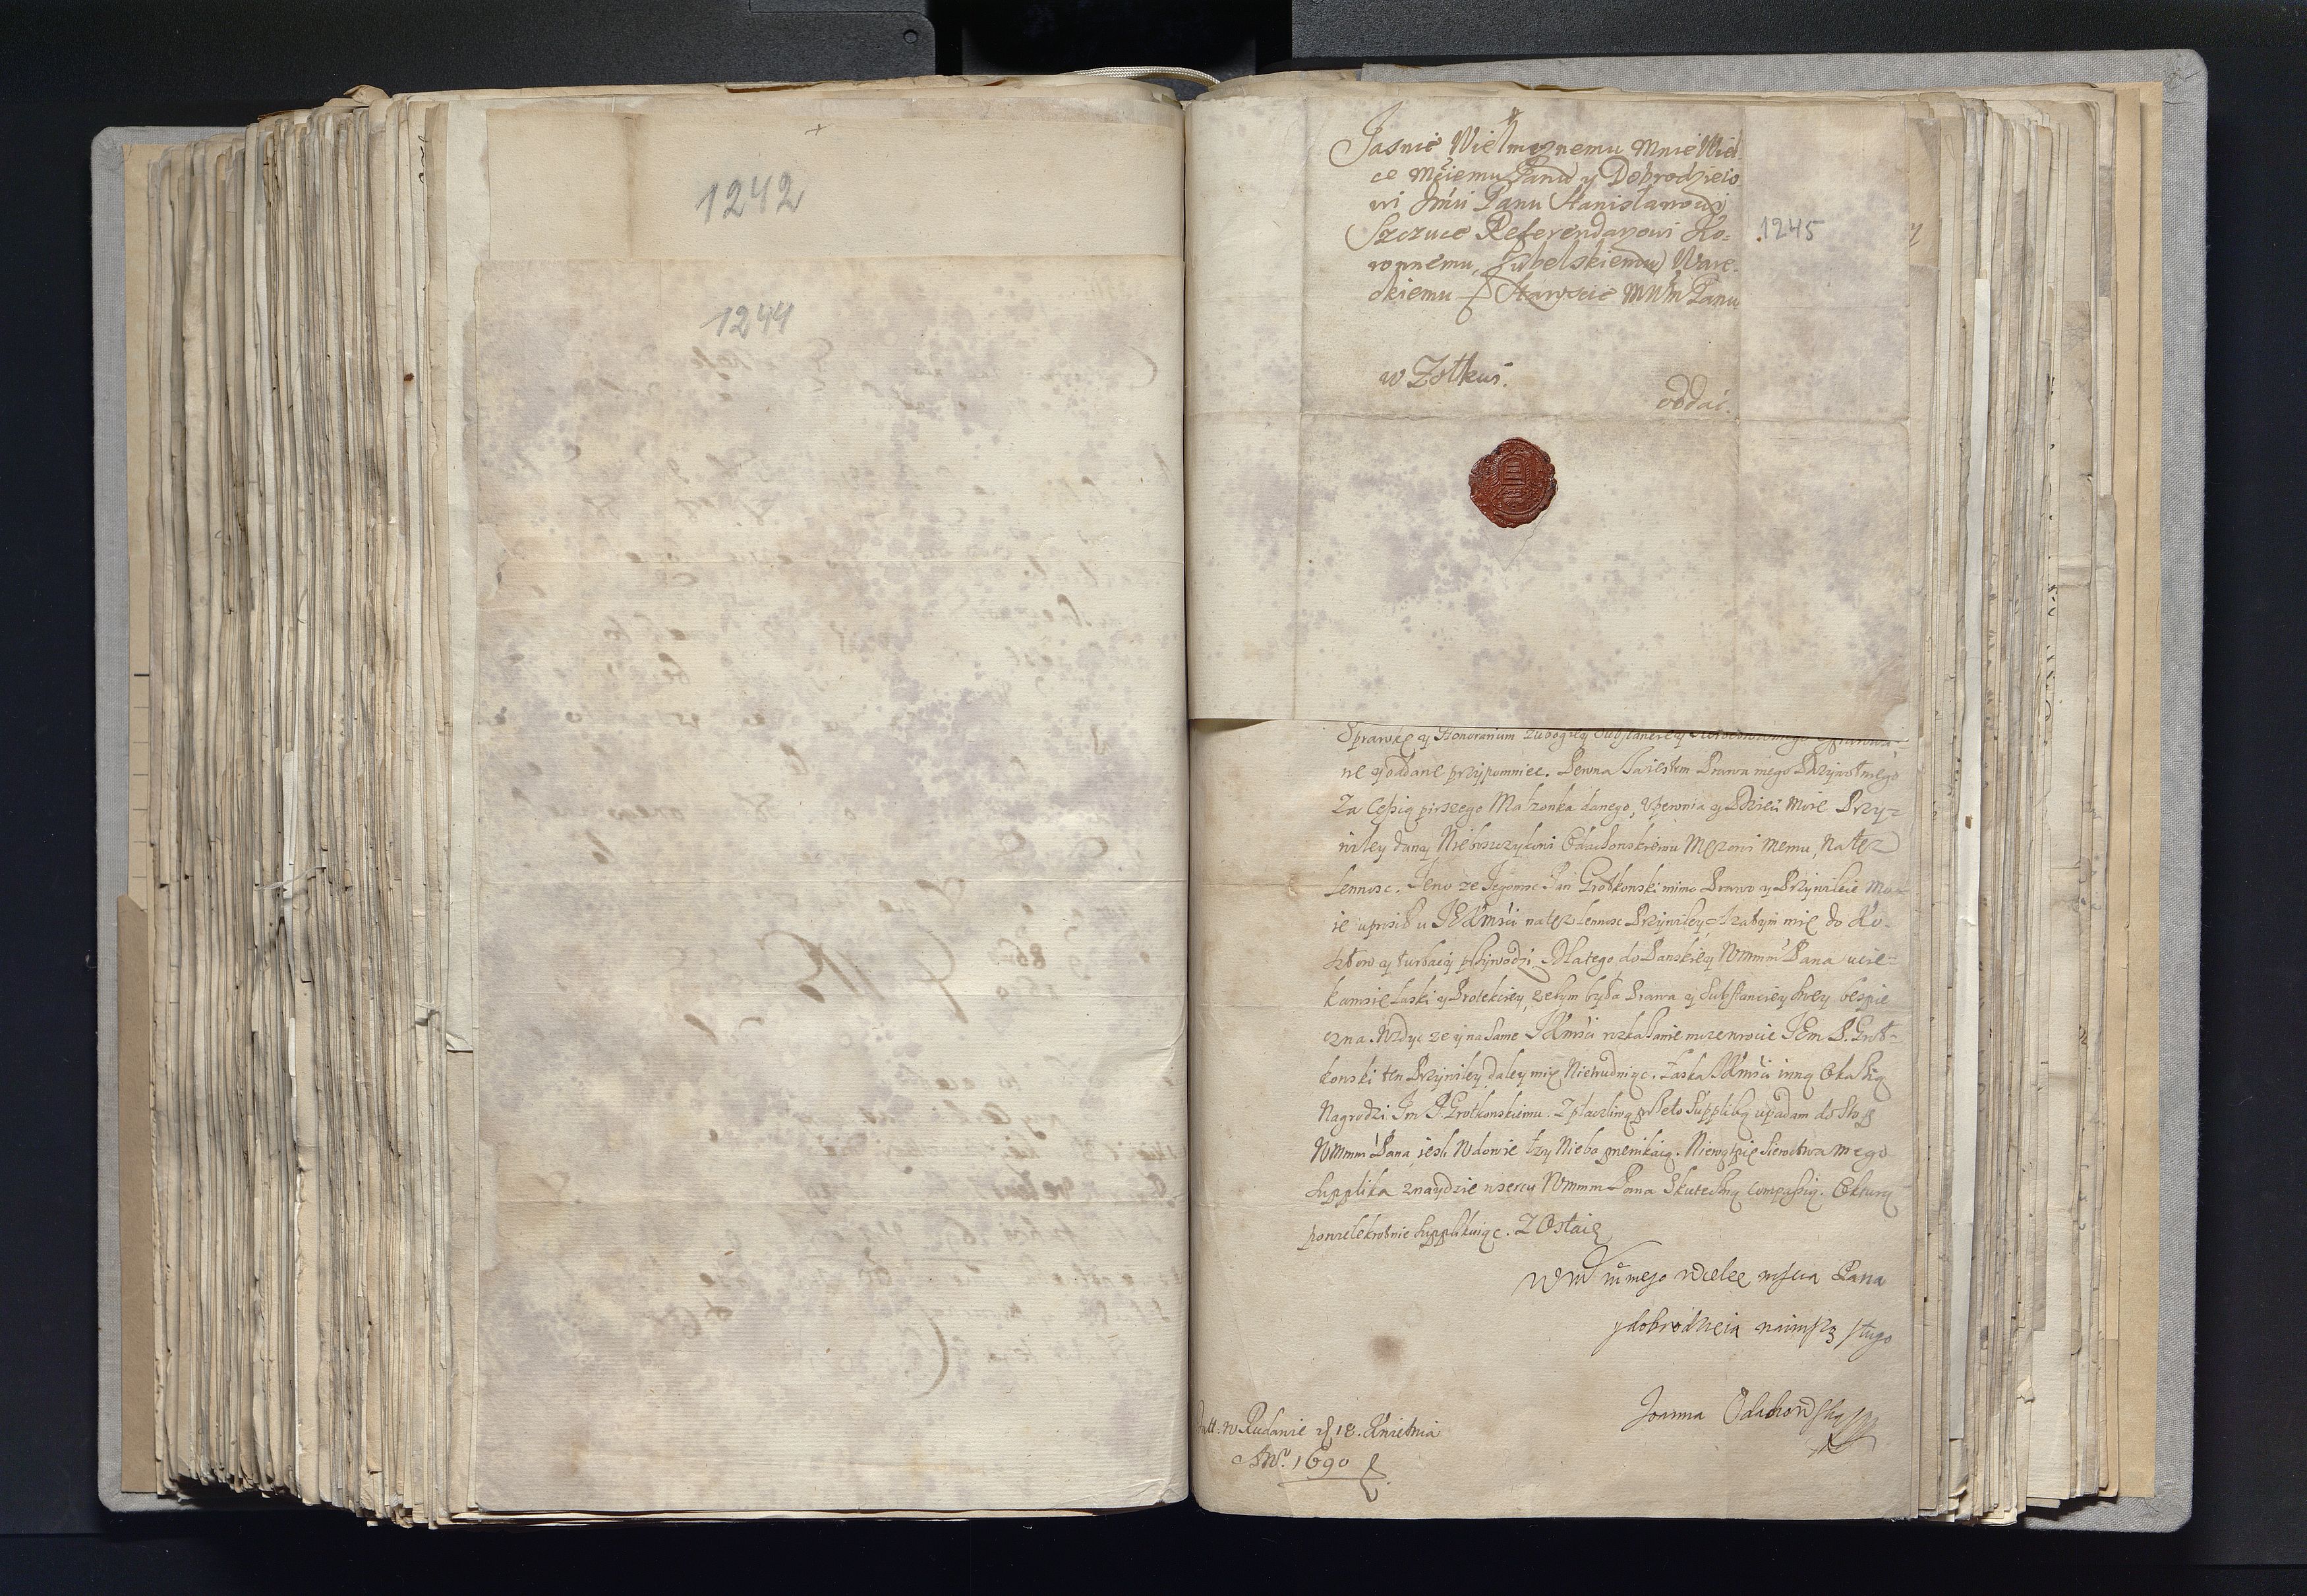 1242
1244
Jasnie Wielmoznemu Mnie Wiel
ce Mściemu Panu y Dobrodzieio
wi Jmći Panu Stanisławowi
Szczuce Referendarzowi Ko=
ronnemu, Lubelskiemu Ware-
ckiemu Staroscie MWM Panu
1245
w Zołkwi.
oddać.
Sprawkę y Honorarium
ne y oddane przypomniec. Pewna Ja iestem Prawa mego Dozywotnego
Za Cessią pirszego Małzonka danego, Upewnia y Dzieci Moie Przy=
wiley dany Nieboszczykowi Odachowskiemu Męzowi Memu, Na tęz
Tenute. Jeno ze Jegomosc Pan Grotkowski mimo Prawo y Przywileie Mo-
ie uprosił u JKMsci na tęz Przywiley zatym mię do Ko-
sztow y turbacij przywodzi. Dlatego do Panskiey WMMM Pana ucie=
kamsie Łaski y Protekciey, zebym była Prawa y Substanciey swey bespie
czna. Wzdyc ze y na same JKMsci rozkazanie JEm P. Grot=
konski ten Przywiley daley mię Nietrudniąc. Łaska JKMsci inną Okasią
Nagrodzi Jm P Grotkowskiemu. Z płaczliwą przeto Suppliką upadam do Stop
WMMM Pana, iesli Wdowie Łzy Nieba przenikaią. Niewątpię Sieroctwa mego
Supplika znaydzie w sercu WMMM Pana Skuteczną compassią. O ktorą
powielekrotnie Supplikuiąc. Zostaię
Wm mego wielce Pana
y dobrodzieia naimsza sługa
Joanna Odachowska
Datt. w Rudawie d 18. Kwietnia
Ano. 1690